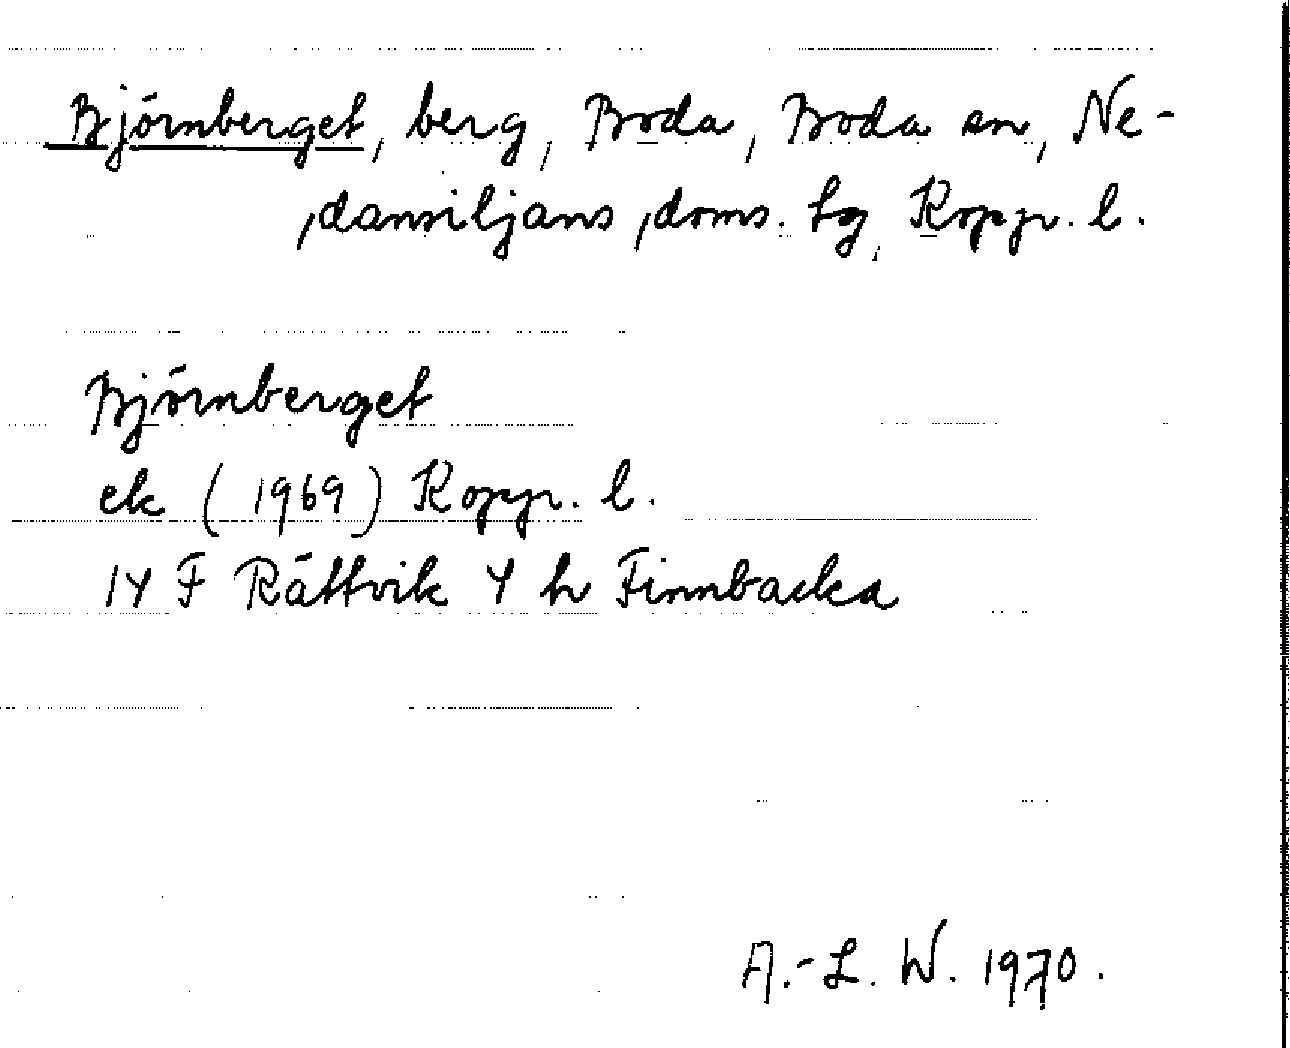 Björnberget, berg, Boda, Boda sn, Ne-
dansiljans doms. tg, Kopp. l.
Björnberget
ek (1969) Kopp. l.
14 F Rättvik 4 h Finnbacka
A.-L. W. 1970.